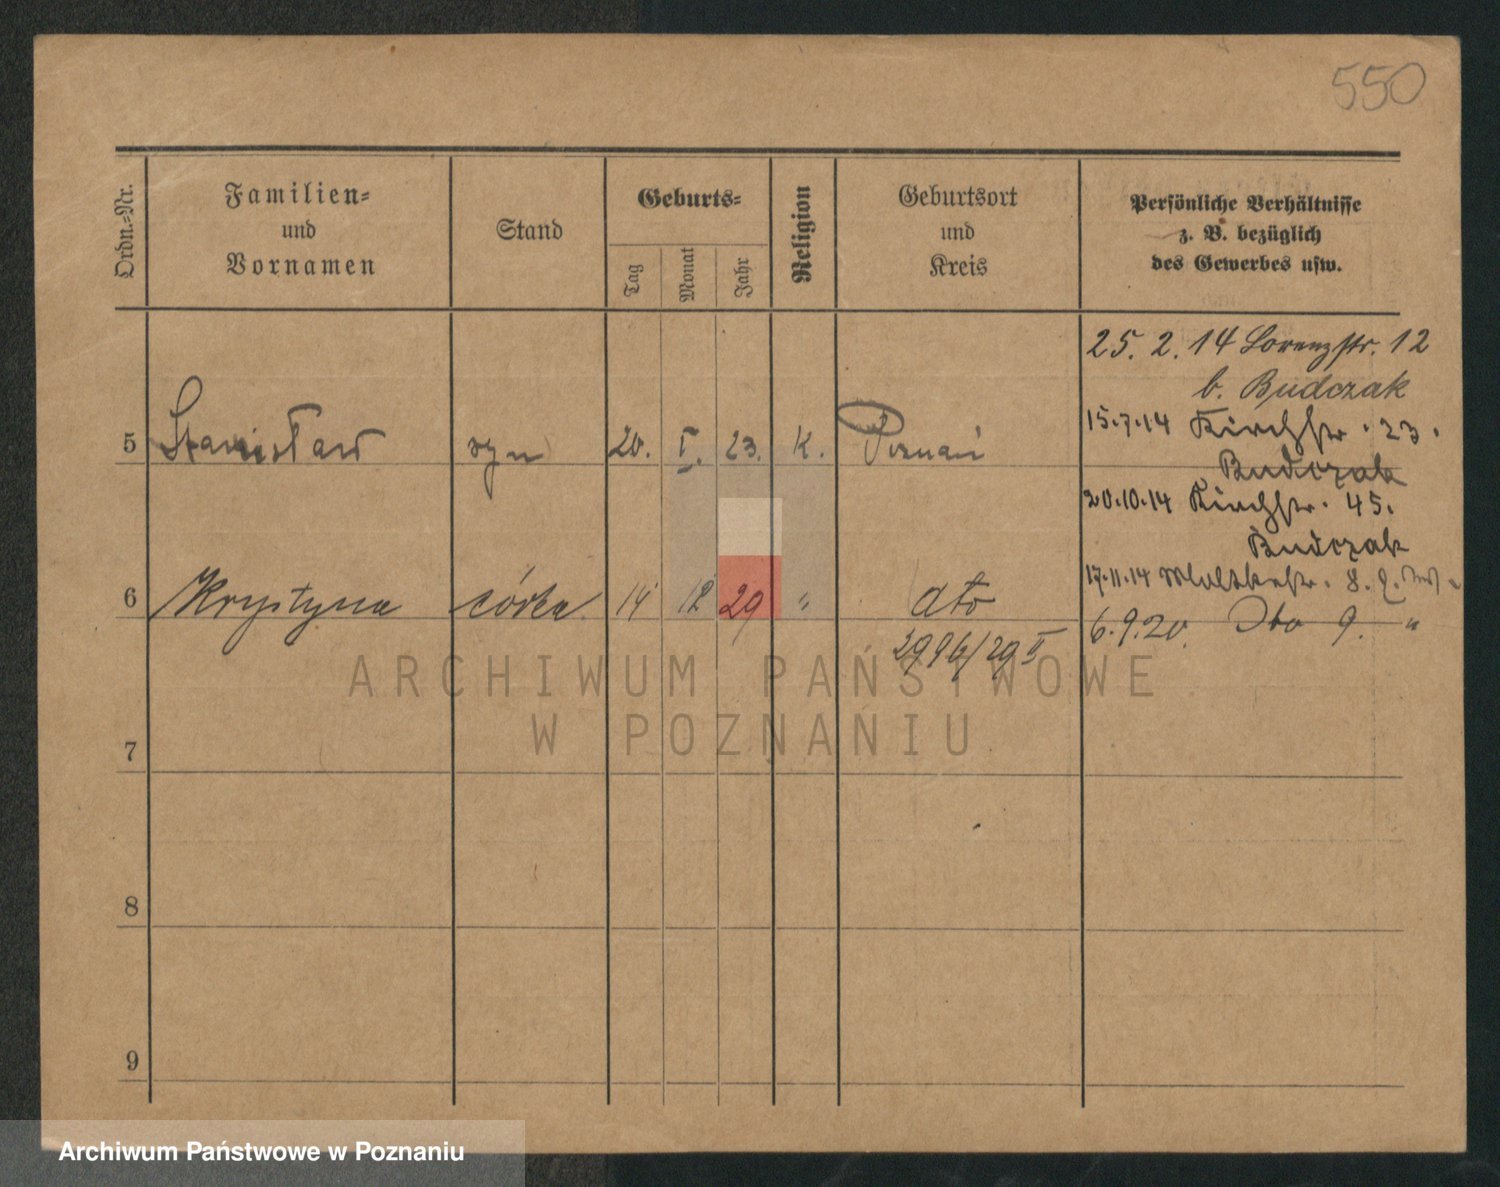 550
Ordn.-Nr.
Familien-
und
Vornamen
Stand
Geburts-
Tag
Monat
Jahr
Religion
Geburtsort
und
Kreis
Persönliche Verhältnisse
z. B. bezüglich
des Gewerbes usw.
25. 2. 14 Lorenzstr. 12
b. Budczak
15.7.14 Kirchstr. 23.
Budczak
5 Stanisław syn 20. I. 23. K. Poznań
20.10.14 Kirchstr. 45.
Budczak
17.11.14 Moltkestr. 8.
6 Krystyna córka 14 12 29 " dto
6.9.20. Dto 9. "
2996/29 II
ARCHIWUM PAŃSTWOWE
W POZNANIU
7
8
9
Archiwum Państwowe w Poznaniu